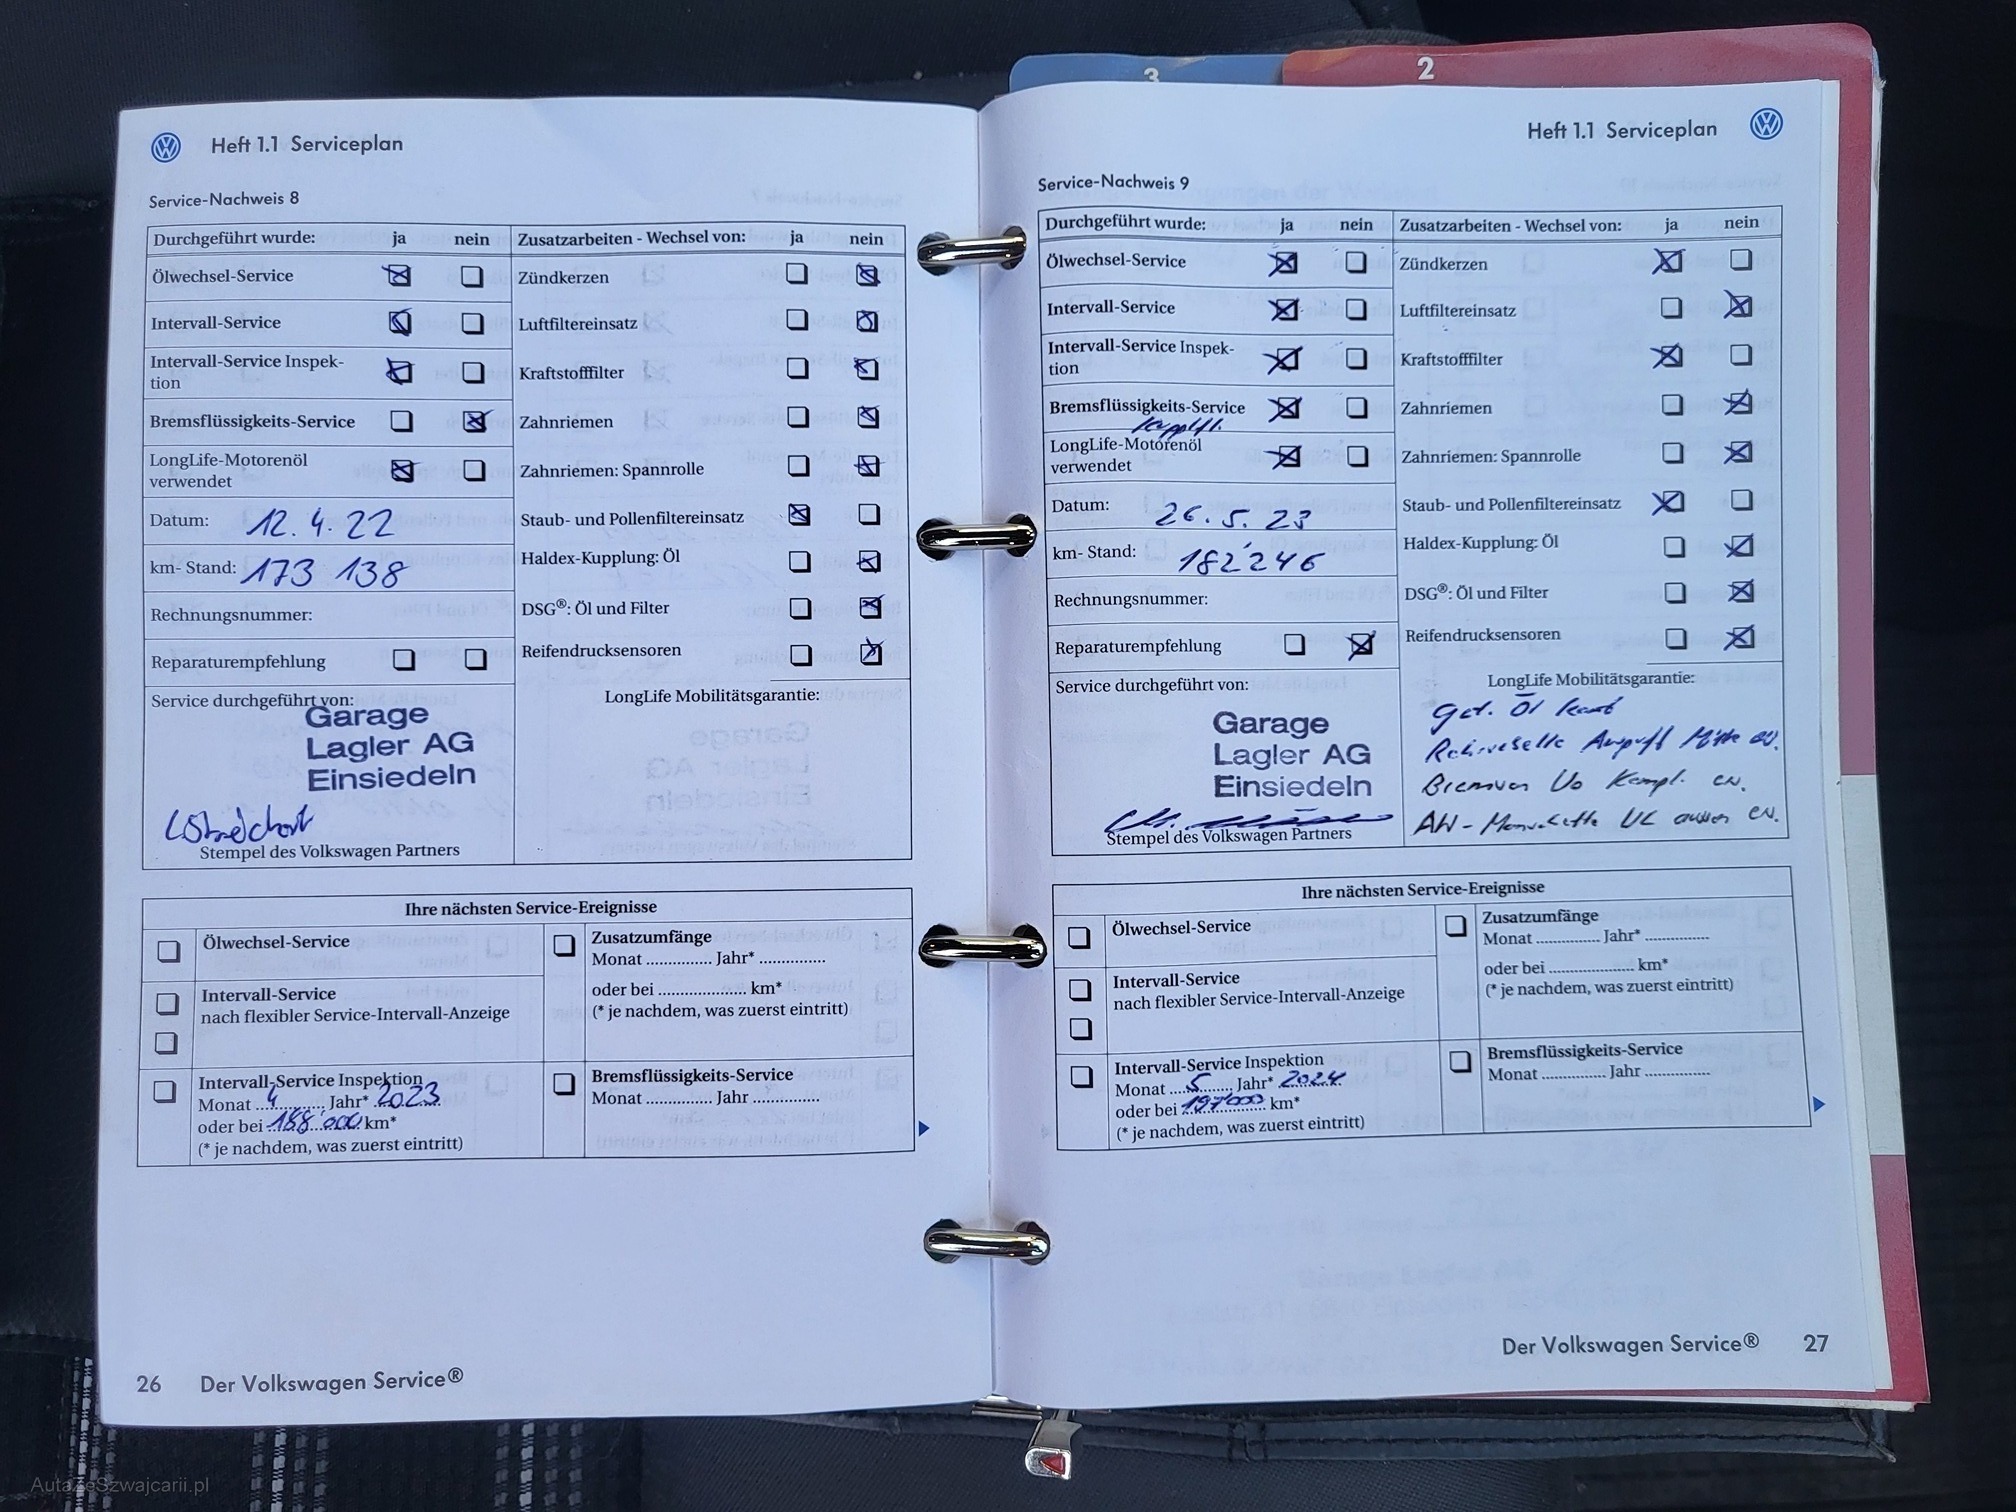 3
2
Heft 1.1 Serviceplan
Service-Nachweis 8
Durchgeführt wurde: ja nein Zusatzarbeiten - Wechsel von: ja nein
Ölwechsel-Service Zündkerzen
Intervall-Service Luftfiltereinsatz
Intervall-Service Inspek-
tion
Kraftstofffilter
Bremsflüssigkeits-Service Zahnriemen
LongLife-Motorenöl
verwendet
Zahnriemen: Spannrolle
Datum: 12.4.22 Staub- und Pollenfiltereinsatz
km- Stand: 173 138 Haldex-Kupplung: Öl
Rechnungsnummer: DSG®: Öl und Filter
Reparaturempfehlung Reifendrucksensoren
Service durchgeführt von: LongLife Mobilitätsgarantie:
Garage
Lagler AG
Einsiedeln
Stempel des Volkswagen Partners
Ihre nächsten Service-Ereignisse
Ölwechsel-Service
Intervall-Service
nach flexibler Service-Intervall-Anzeige
Intervall-Service Inspektion
Monat 4 Jahr* 2023
oder bei 188'000 km*
(* je nachdem, was zuerst eintritt)
Zusatzumfänge
Monat .............. Jahr* ..............
oder bei ................... km*
(* je nachdem, was zuerst eintritt)
Bremsflüssigkeits-Service
Monat .............. Jahr ..............
26 Der Volkswagen Service®
Heft 1.1 Serviceplan
Service-Nachweis 9
Durchgeführt wurde: ja nein Zusatzarbeiten - Wechsel von: ja nein
Ölwechsel-Service Zündkerzen
Intervall-Service Luftfiltereinsatz
Intervall-Service Inspek-
tion
Kraftstofffilter
Bremsflüssigkeits-Service Zahnriemen
LongLife-Motorenöl
verwendet
Zahnriemen: Spannrolle
Datum: 26.5.23 Staub- und Pollenfiltereinsatz
km- Stand: 182'246 Haldex-Kupplung: Öl
Rechnungsnummer: DSG®: Öl und Filter
Reparaturempfehlung Reifendrucksensoren
Service durchgeführt von: LongLife Mobilitätsgarantie:
Garage
Lagler AG
Einsiedeln
Öl
Mitte
Bremsen Vo Kompl. en.
AW-Manschette aussen en.
Stempel des Volkswagen Partners
Ihre nächsten Service-Ereignisse
Ölwechsel-Service
Intervall-Service
nach flexibler Service-Intervall-Anzeige
Intervall-Service Inspektion
Monat 5 Jahr* 2024
oder bei 197'000 km*
(* je nachdem, was zuerst eintritt)
Zusatzumfänge
Monat .............. Jahr* ..............
oder bei ................... km*
(* je nachdem, was zuerst eintritt)
Bremsflüssigkeits-Service
Monat .............. Jahr ..............
Der Volkswagen Service® 27
AutaZeSzwajcarii.pl